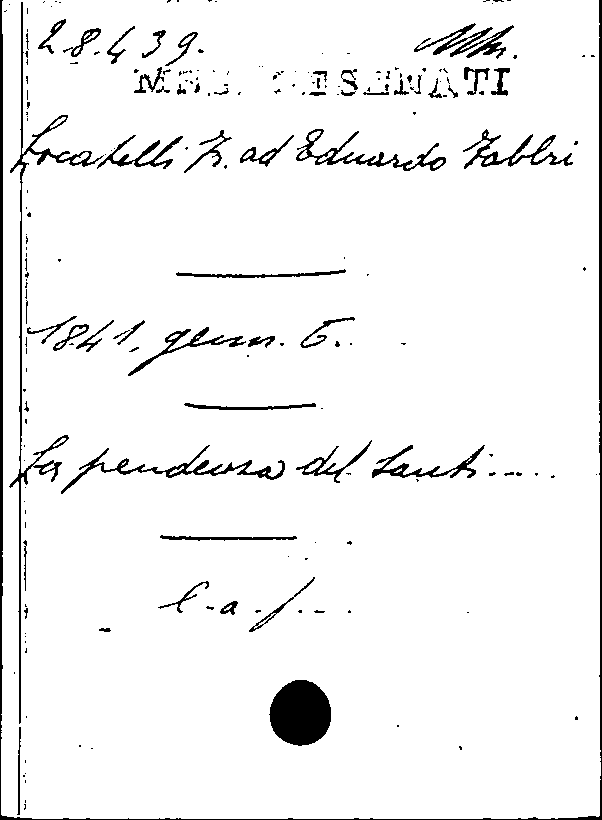 28.439.
MSS. CESENATI
Locatelli F. ad Eduardo Fabbri
1841, genn. 5.
La pendenza del Santi....
l.a.f...